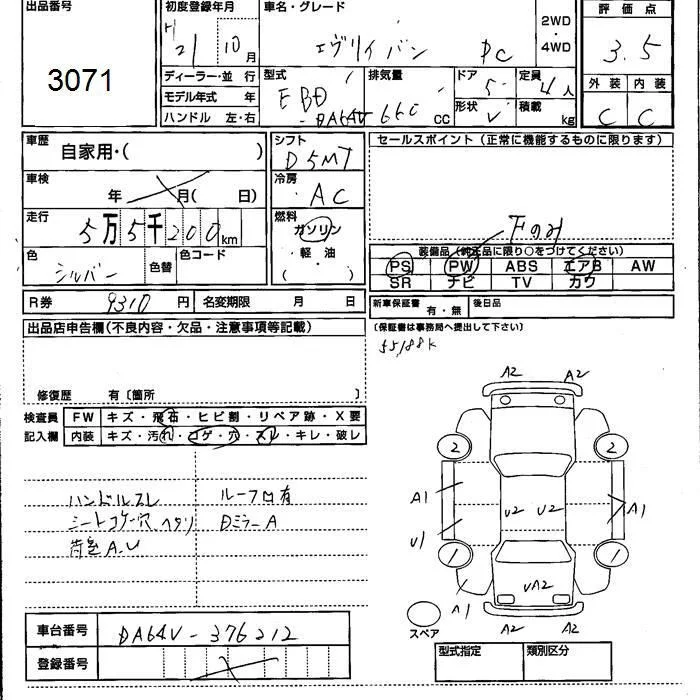 出品番号 初度登録年月 車名・グレード 2WD ・ 4WD 評価点
3071 H 21 10月 エブリイバン PC 3.5
ディーラー・並 行 型式 排気量 ドア 5 定員 4人 外装 内装
モデル年式 年 EBD 形状 V 積載 kg C C
ハンドル 左・右 -DA64V 660 CC
車歴 自家用・( ) シフト D5MT セールスポイント(正常に機能するものに限ります)
車検 年 月( 日) 冷房 AC
走行 5万5千200km 燃料 ガソリン・軽油・( ) 下のみ
色 シルバー 色替 色コード 装備品(純正品に限り○をつけてください)
PS PW ABS エアB AW
SR ナビ TV カワ
R券 9310円 名変期限 月 日 新車保証書 有・無 後日品
出品店申告欄(不良内容・欠品・注意事項等記載) (保証書は事務局へ提出して下さい)
55188K
修復歴 有〔箇所 〕
検査員 FW キズ・飛石・ヒビ割・リペア跡・X要
記入欄 内装 キズ・汚れ・コゲ・穴・スレ・キレ・破レ
ハンドルスレ ルーフ凹有
シートコゲ穴 ヘタリ DミラーA
荷室A.U
A2 A2
2 2
A1 U2 U2 A1
U1
1 1
A1 UA2
A2 A2
スペア
車台番号 DA64V-376212
登録番号 型式指定 類別区分